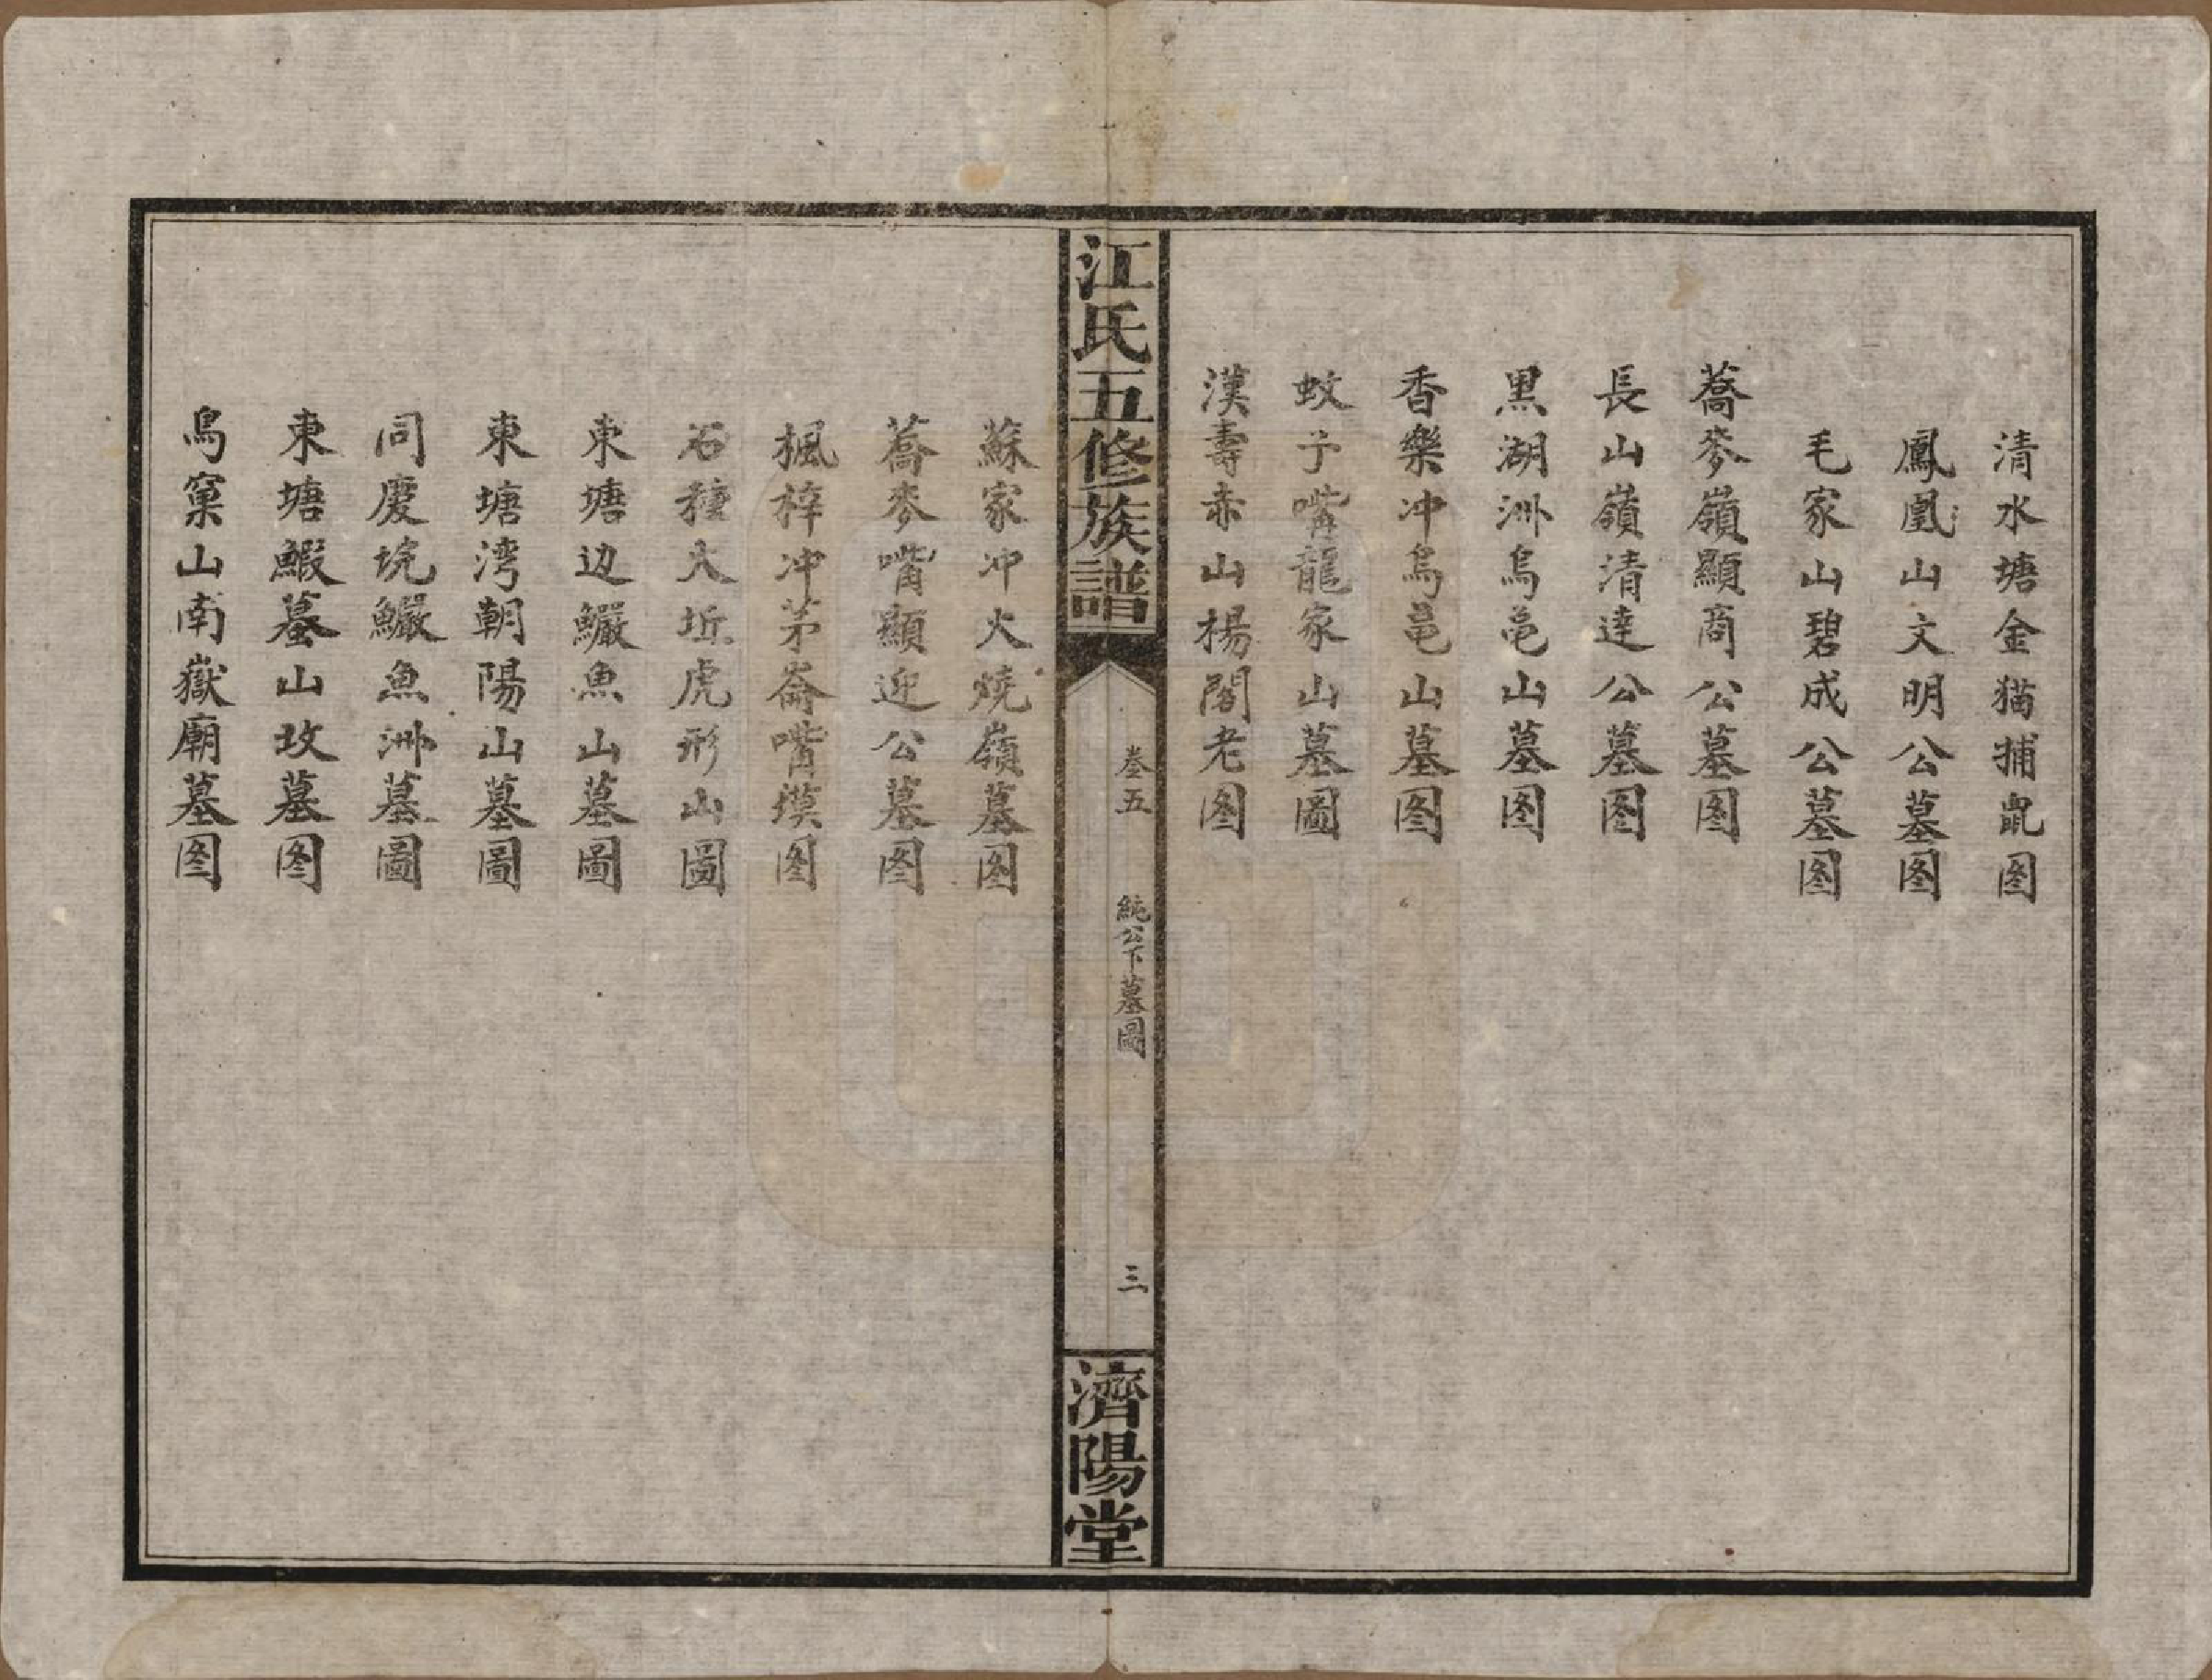 清水塘金猫捕鼠图
鳳凰山文明公墓图
毛家山碧成公墓图
蕎麥嶺顯商公墓图
長山嶺清達公墓图
黑湖洲烏邑山墓图
香樂冲烏邑山墓图
蚊子嘴龍家山墓圖
漢壽赤山楊閣老图
江氏五修族譜
卷五
純公下墓圖
三
濟陽堂
蘇家冲火燒嶺墓图
蕎麥嘴顯迎公墓图
楓梓冲茅崙嘴塻图
石種大坵虎形山圖
東塘边鱺魚山墓圖
東塘湾朝陽山墓圖
同慶垸鱺魚洲墓圖
東塘鰕蟇山坟墓图
鳥窠山南嶽廟墓图